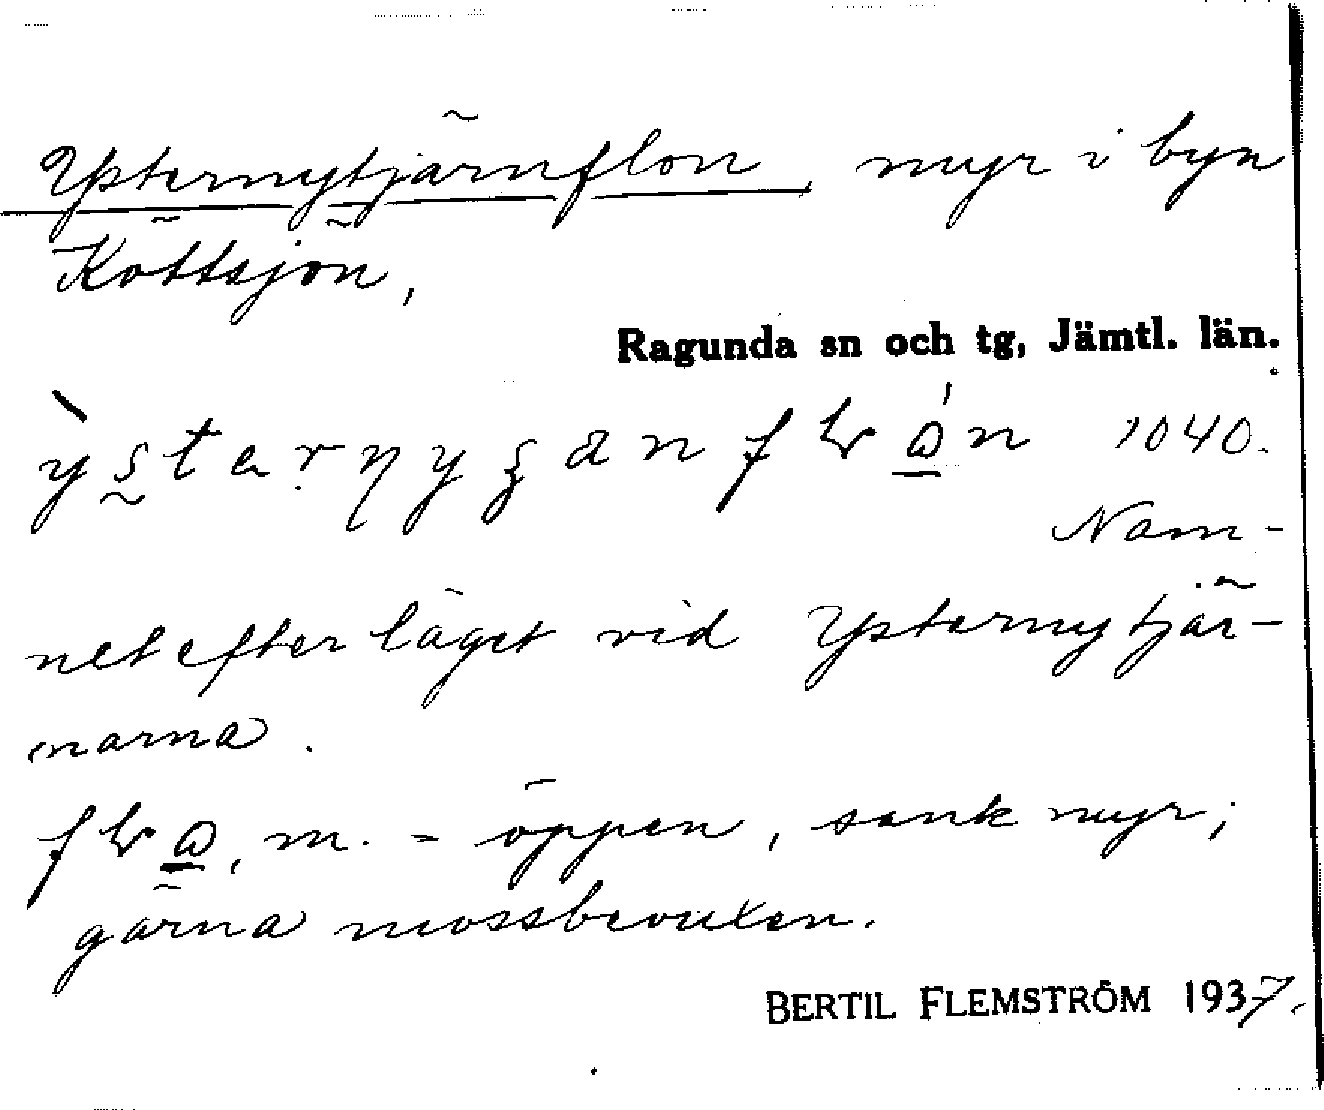 Ypsternytjärnflon, myr i byn
Köttsjön,
Ragunda sn och tg, Jämtl. län.
1040.
Nam-
net efter läget vid Ypsternytjär-
narna.
m. = öppen, sank myr;
gärna mossbevuxen.
BERTIL FLEMSTRÖM 1937.